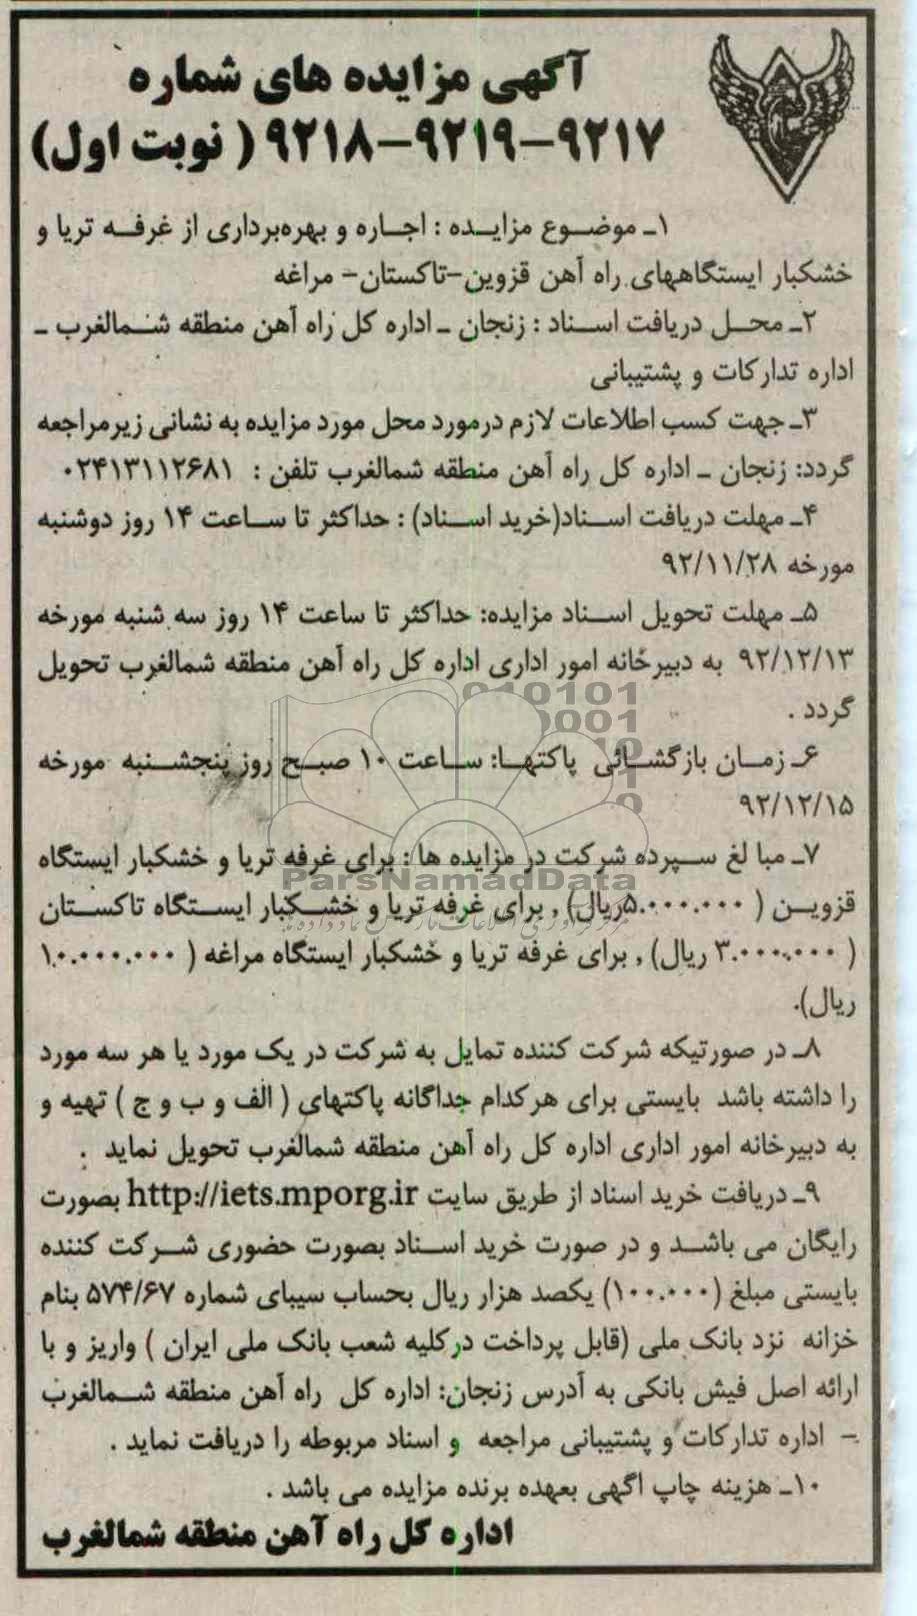 آگهی مزایده های شماره
۹۲۱۷-۹۲۱۹-۹۲۱۸ ( نوبت اول)
۱ـ موضوع مزایده : اجاره و بهره‌برداری از غرفه تریا و
خشکبار ایستگاههای راه آهن قزوین-تاکستان- مراغه
۲ـ محل دریافت اسناد : زنجان ـ اداره کل راه آهن منطقه شمالغرب ـ
اداره تدارکات و پشتیبانی
۳ـ جهت کسب اطلاعات لازم درمورد محل مورد مزایده به نشانی زیرمراجعه
گردد: زنجان ـ اداره کل راه آهن منطقه شمالغرب تلفن : ۰۲۴۱۳۱۱۲۶۸۱
۴ـ مهلت دریافت اسناد(خرید اسناد) : حداکثر تا ساعت ۱۴ روز دوشنبه
مورخه ۹۲/۱۱/۲۸
۵ـ مهلت تحویل اسناد مزایده: حداکثر تا ساعت ۱۴ روز سه شنبه مورخه
۹۲/۱۲/۱۳ به دبیرخانه امور اداری اداره کل راه آهن منطقه شمالغرب تحویل
گردد .
۶ـ زمان بازگشائی پاکتها: ساعت ۱۰ صبح روز پنجشنبه مورخه
۹۲/۱۲/۱۵
۷ـ مبا لغ سپرده شرکت در مزایده ها : برای غرفه تریا و خشکبار ایستگاه
قزوین ( ۵.۰۰۰.۰۰۰ریال) , برای غرفه تریا و خشکبار ایستگاه تاکستان
( ۳.۰۰۰.۰۰۰ ریال) , برای غرفه تریا و خشکبار ایستگاه مراغه ( ۱۰.۰۰۰.۰۰۰
ریال).
۸ـ در صورتیکه شرکت کننده تمایل به شرکت در یک مورد یا هر سه مورد
را داشته باشد بایستی برای هرکدام جداگانه پاکتهای ( الف و ب و ج ) تهیه و
به دبیرخانه امور اداری اداره کل راه آهن منطقه شمالغرب تحویل نماید .
۹ـ دریافت خرید اسناد از طریق سایت http://iets.mporg.ir بصورت
رایگان می باشد و در صورت خرید اسناد بصورت حضوری شرکت کننده
بایستی مبلغ (۱۰۰.۰۰۰) یکصد هزار ریال بحساب سیبای شماره ۵۷۴/۶۷ بنام
خزانه نزد بانک ملی (قابل پرداخت درکلیه شعب بانک ملی ایران ) واریز و با
ارائه اصل فیش بانکی به آدرس زنجان: اداره کل راه آهن منطقه شمالغرب
- اداره تدارکات و پشتیبانی مراجعه و اسناد مربوطه را دریافت نماید .
۱۰ـ هزینه چاپ اگهی بعهده برنده مزایده می باشد .
اداره کل راه آهن منطقه شمالغرب
ParsNamadData